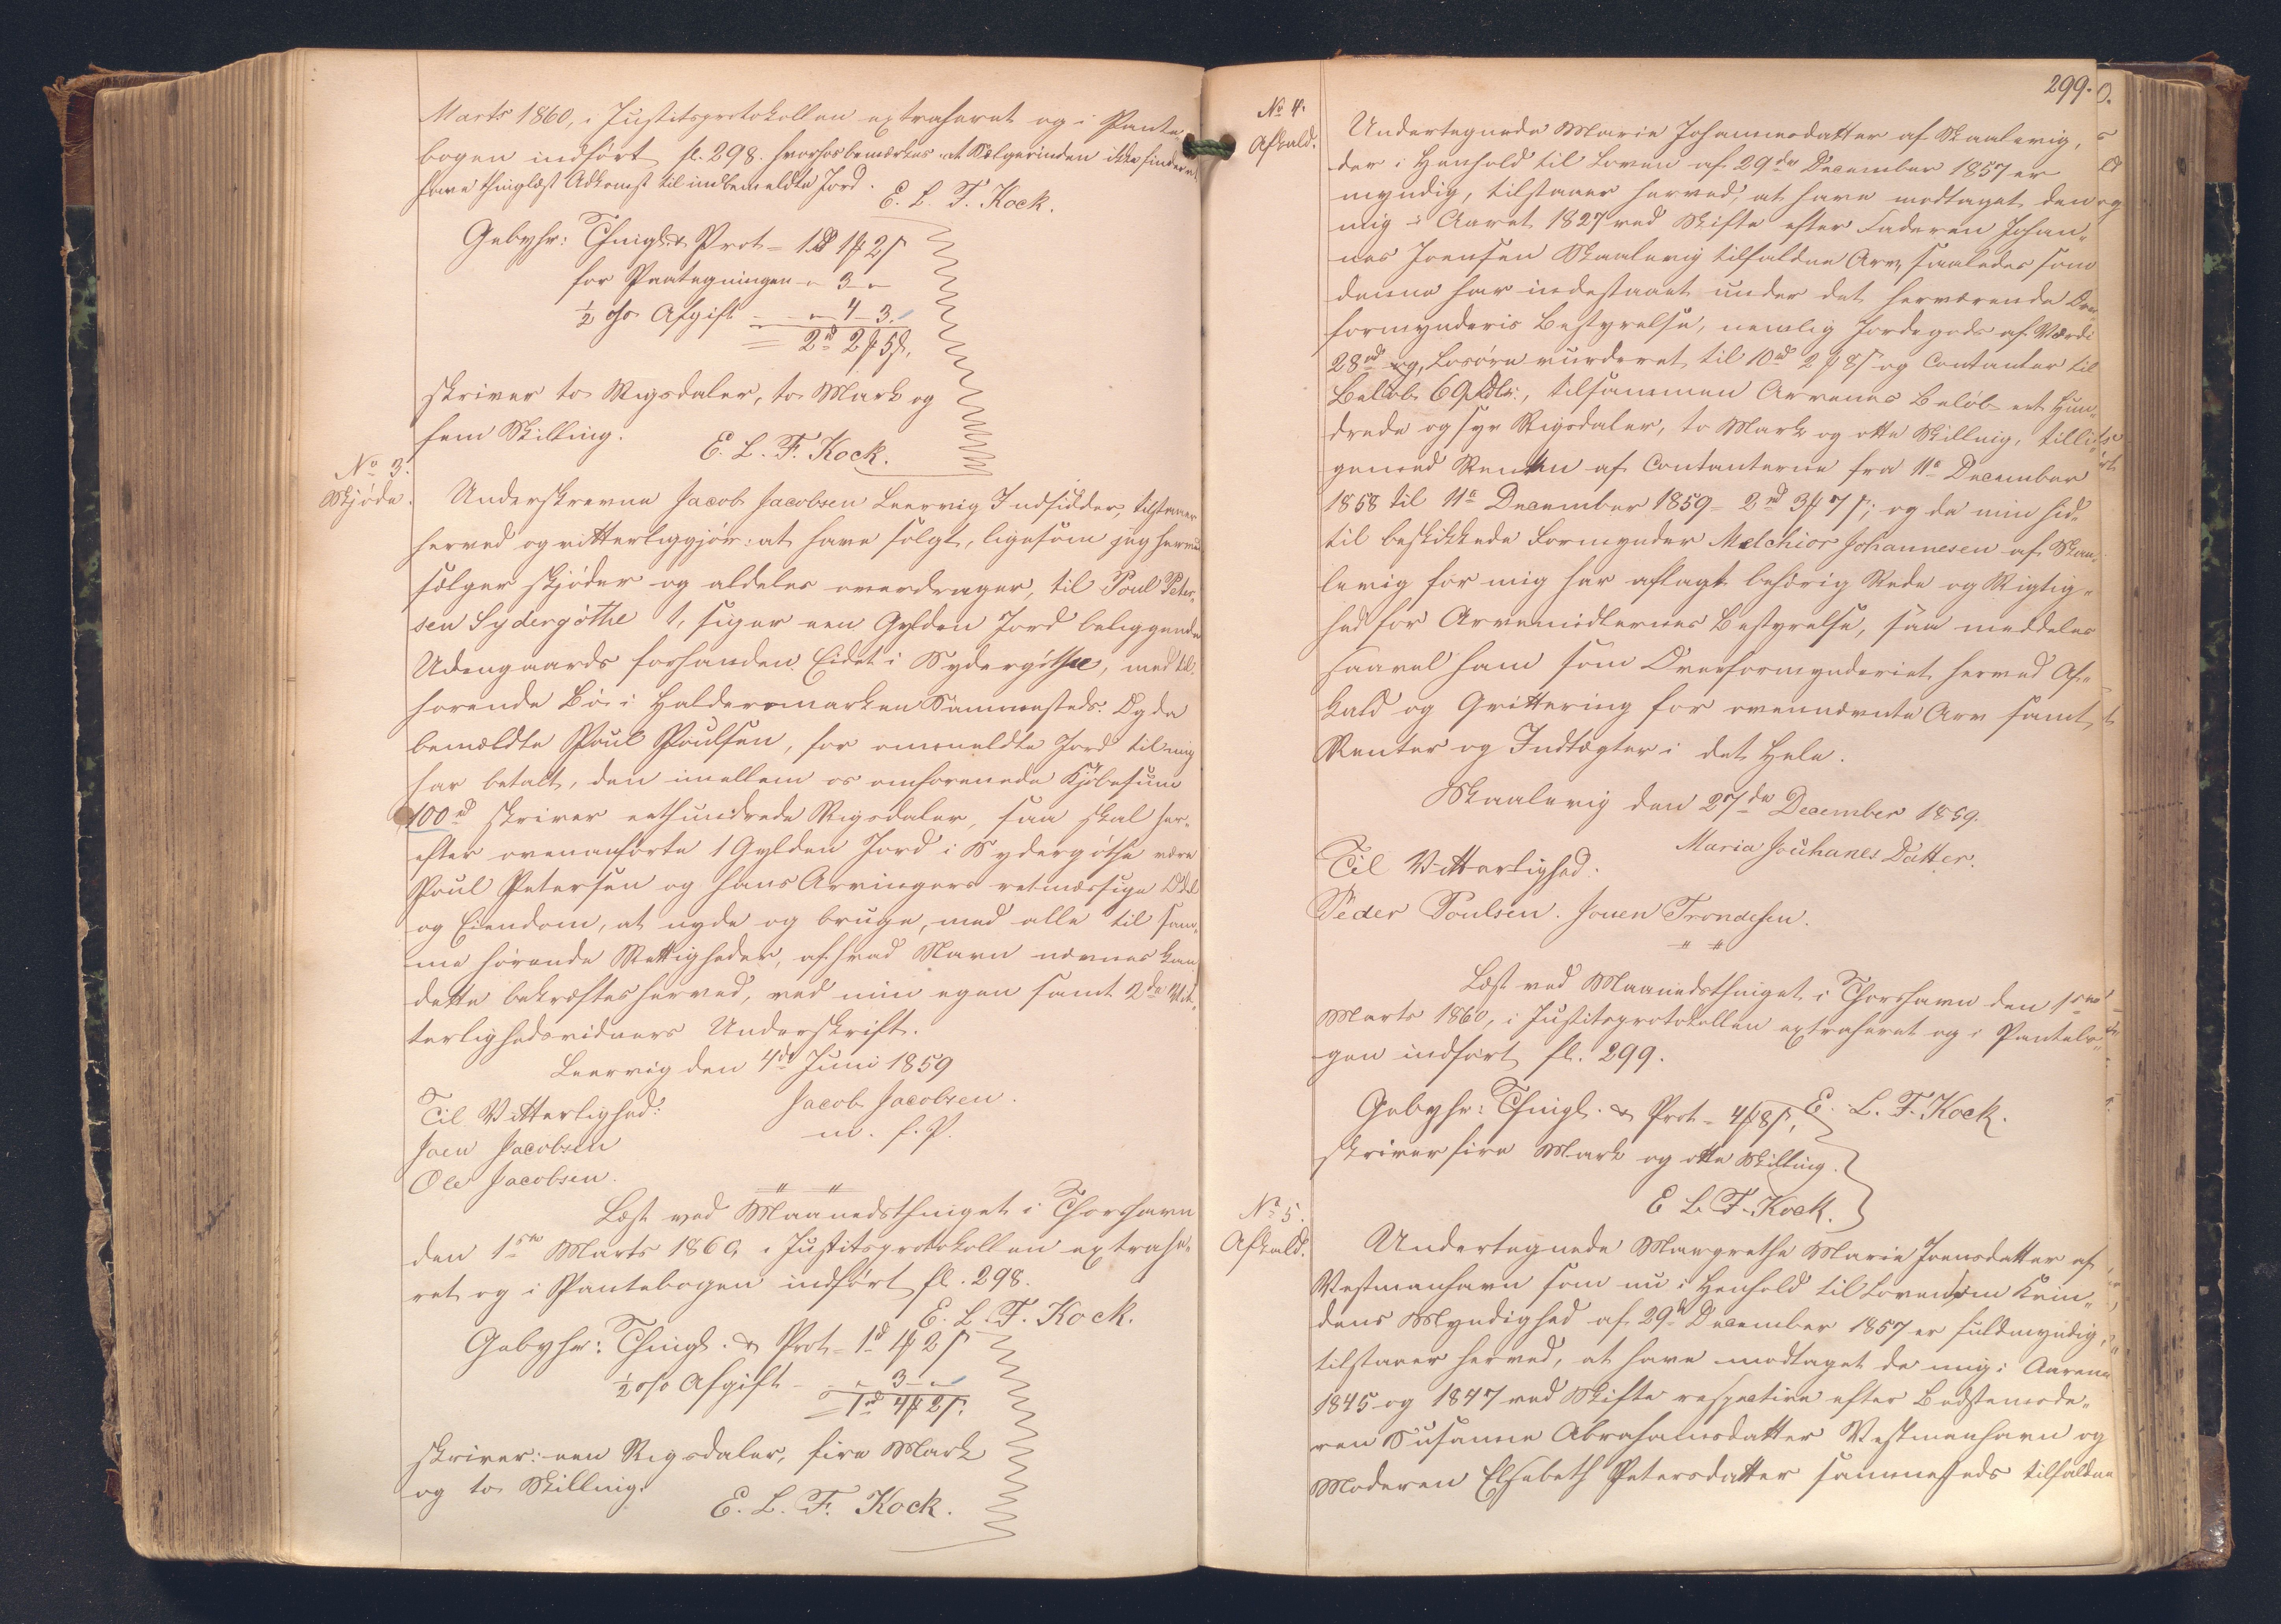 Marts 1860, i Justitsprotokollen extraheret og i Pante
bogen indført fl. 298. hvorhos bemærkes at Sælgerinden ikke findes at
have thinglæst Adkomst til indbemeldte Jord.
E. L. F. Kock.
Gebyhr: Thingl. & Prot = 1 rd 1 # 2 s
for Paategningen - " 3 - "
½ o/o Afgift - - " 4 - 3.
= 2 rd 2 # 5 s.
skriver to Rigsdaler, to Mark og
fem Skilling.
E. L. F. Kock.
No 3.
Skjøde.
Underskrevne Jacob Jacobsen Leervig Indsidder, tilstaaer
herved og vitterliggjør: at have solgt, ligesom jeg herved
sælger skjøder og aldeles overdrager, til Poul Peter-
sen Sydergøthe 1, siger een Gylden Jord beliggende
Udengaards forhanden Eidet i Sydergøthe, med til-
hørende Bø i Haldersmarken Sammesteds. Og da
bemældte Poul Poulsen, for ommeldte Jord til mig
har betalt, den imellem os omforenede Kjøbesum
100 rd skriver eethundrede Rigsdaler, saa skal her-
efter ovenanførte 1 Gylden Jord i Sydergøthe være
Poul Petersen og hans Arvingers retmæssige Odel
og Eiendom, at nyde og bruge, med alle til sam-
me hørende Rettigheder, af hvad Navn nævnes kan
dette bekræftes herved, ved min egen samt 2de Vit-
terlighedsvidners Underskrift.
Leervig den 4de Juni 1859
Til Vitterlighed: Jacob Jacobsen.
Joen Jacobsen m. f. P.
Ole Jacobsen.
Læst ved Maanedsthinget i Thorshavn
den 1ste Marts 1860, i Justitsprotokollen extrahe-
ret og i Pantebogen indført fl. 298.
E. L. F. Kock.
Gebyhr: Thingl. & Prot = 1 rd 1 # 2 s
½ o/o Afgift - - " 3 - "
= 1 rd 4 # 2 s.
skriver: een Rigsdaler, fire Mark
og to Skilling.
E. L. F. Kock.
299.
No 4.
Afkald.
Undertegnede Marie Johannesdatter af Skaalevig,
der i Henhold til Loven af 29de December 1857 er
myndig, tilstaaer herved, at have modtaget den
mig i Aaret 1827 ved Skifte efter Faderen Johan-
nes Joensen Skaalevig tilfaldne Arv, saaledes som
denne har indestaaet under det herværende Over-
formynderis Bestyrelse, nemlig Jordegods af Værdi
28 rd og, Løsøre vurderet til 10 rd 2 # 8 s og Contanter til
Beløb 69 Rdlr., tilsammen Arvenes Beløb eet Hun-
drede og syv Rigsdaler, to Mark og otte Skilling, tillige-
gemed Renten af Contanterne fra 11te December
1858 til 11te December 1859 = 2 rd 3 # 7 s; og da min hid-
til beskikkede Formynder Melchior Johannesen af Skaa-
levig for mig har aflagt behørig Rede og Rigtig-
hed for Arvemidlernes Bestyrelse, saa meddeles
saavel ham som Overformynderiet herved Af-
kald og Qvittering for ovennævnte Arv samt
Renter og Indtægter i det Hele.
Skaalevig den 27de December 1859.
Maria Jouhanes Datter.
Til Vitterlighed:
Peder Poulsen. Jouen Trondesen.
Læst ved Maanedsthinget i Thorshavn den 1ste
Marts 1860, i Justitsprotokollen extraheret og i Pantebo-
gen indført fl. 299.
Gebyhr: Thingl. & Prot = 4 # 8 s, E. L. F. Kock.
skriver fire Mark og otte Skilling.
E. L. F. Kock.
No 5.
Afkald.
Undertegnede Margrethe Marie Joensdatter af
Vestmanhavn som nu i Henhold til Loven om Kvin-
dens Myndighed af 29de December 1857 er fuldmyndig,
tilstaaer herved, at have modtaget de mig i Aarene
1845 og 1847 ved Skifte respective efter Bedstemode-
ren Susanne Abrahamsdatter Vestmanhavn og
Moderen Elsebeth Petersdatter sammesteds tilfaldne